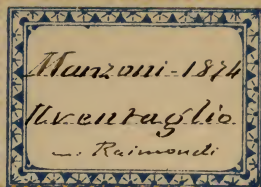 Manzoni - 1874
Il ventaglio
Raimondi